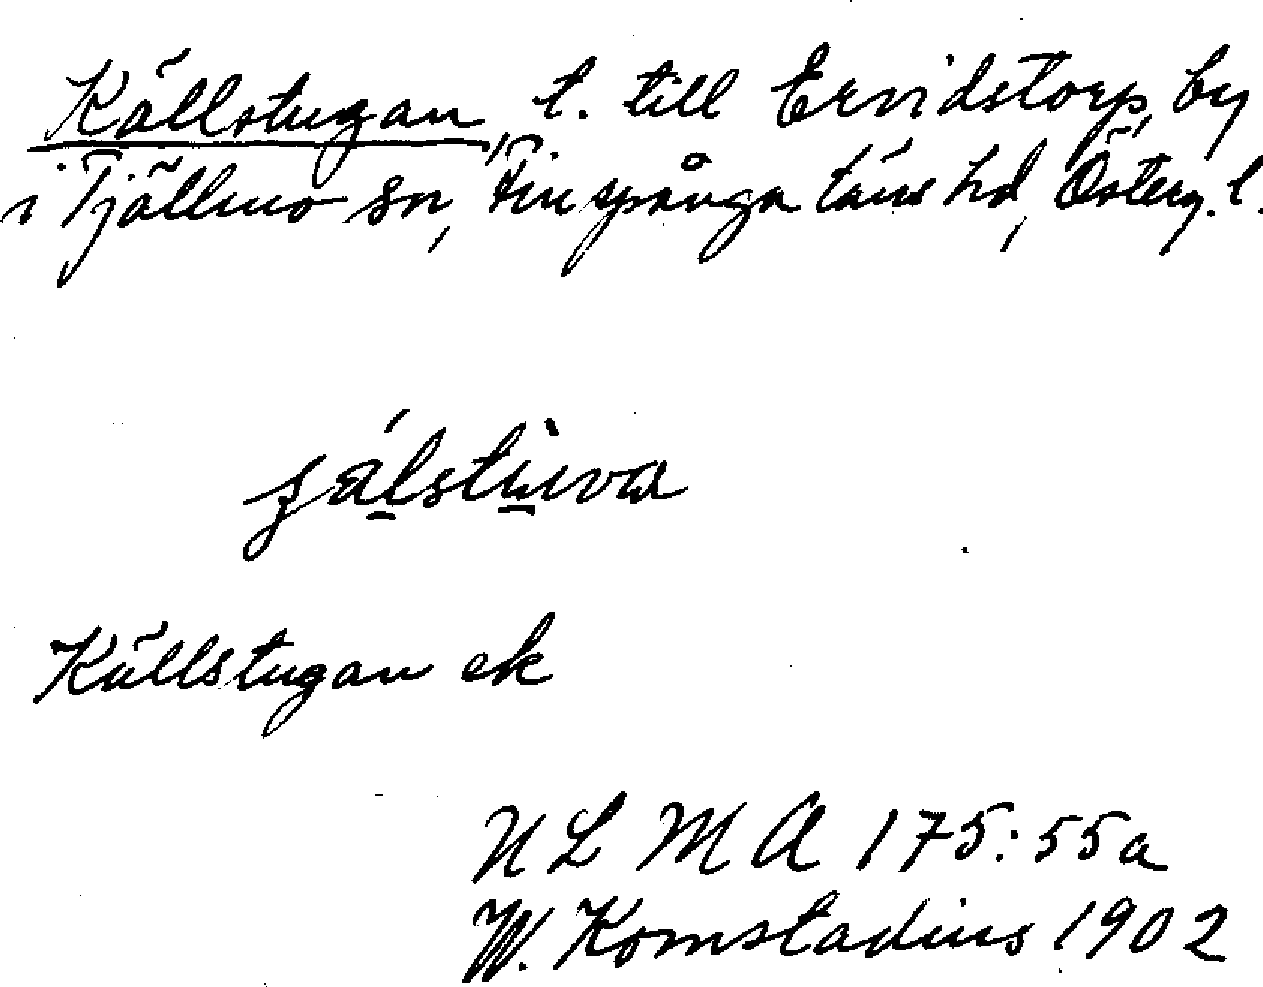 Källstugan, t. till Ervidstorp, by
i Tjällmo sn, Finspånga läns hd, Österg. l.
Källstugan ek
N L M A 175:55a
W. Komstadius 1902